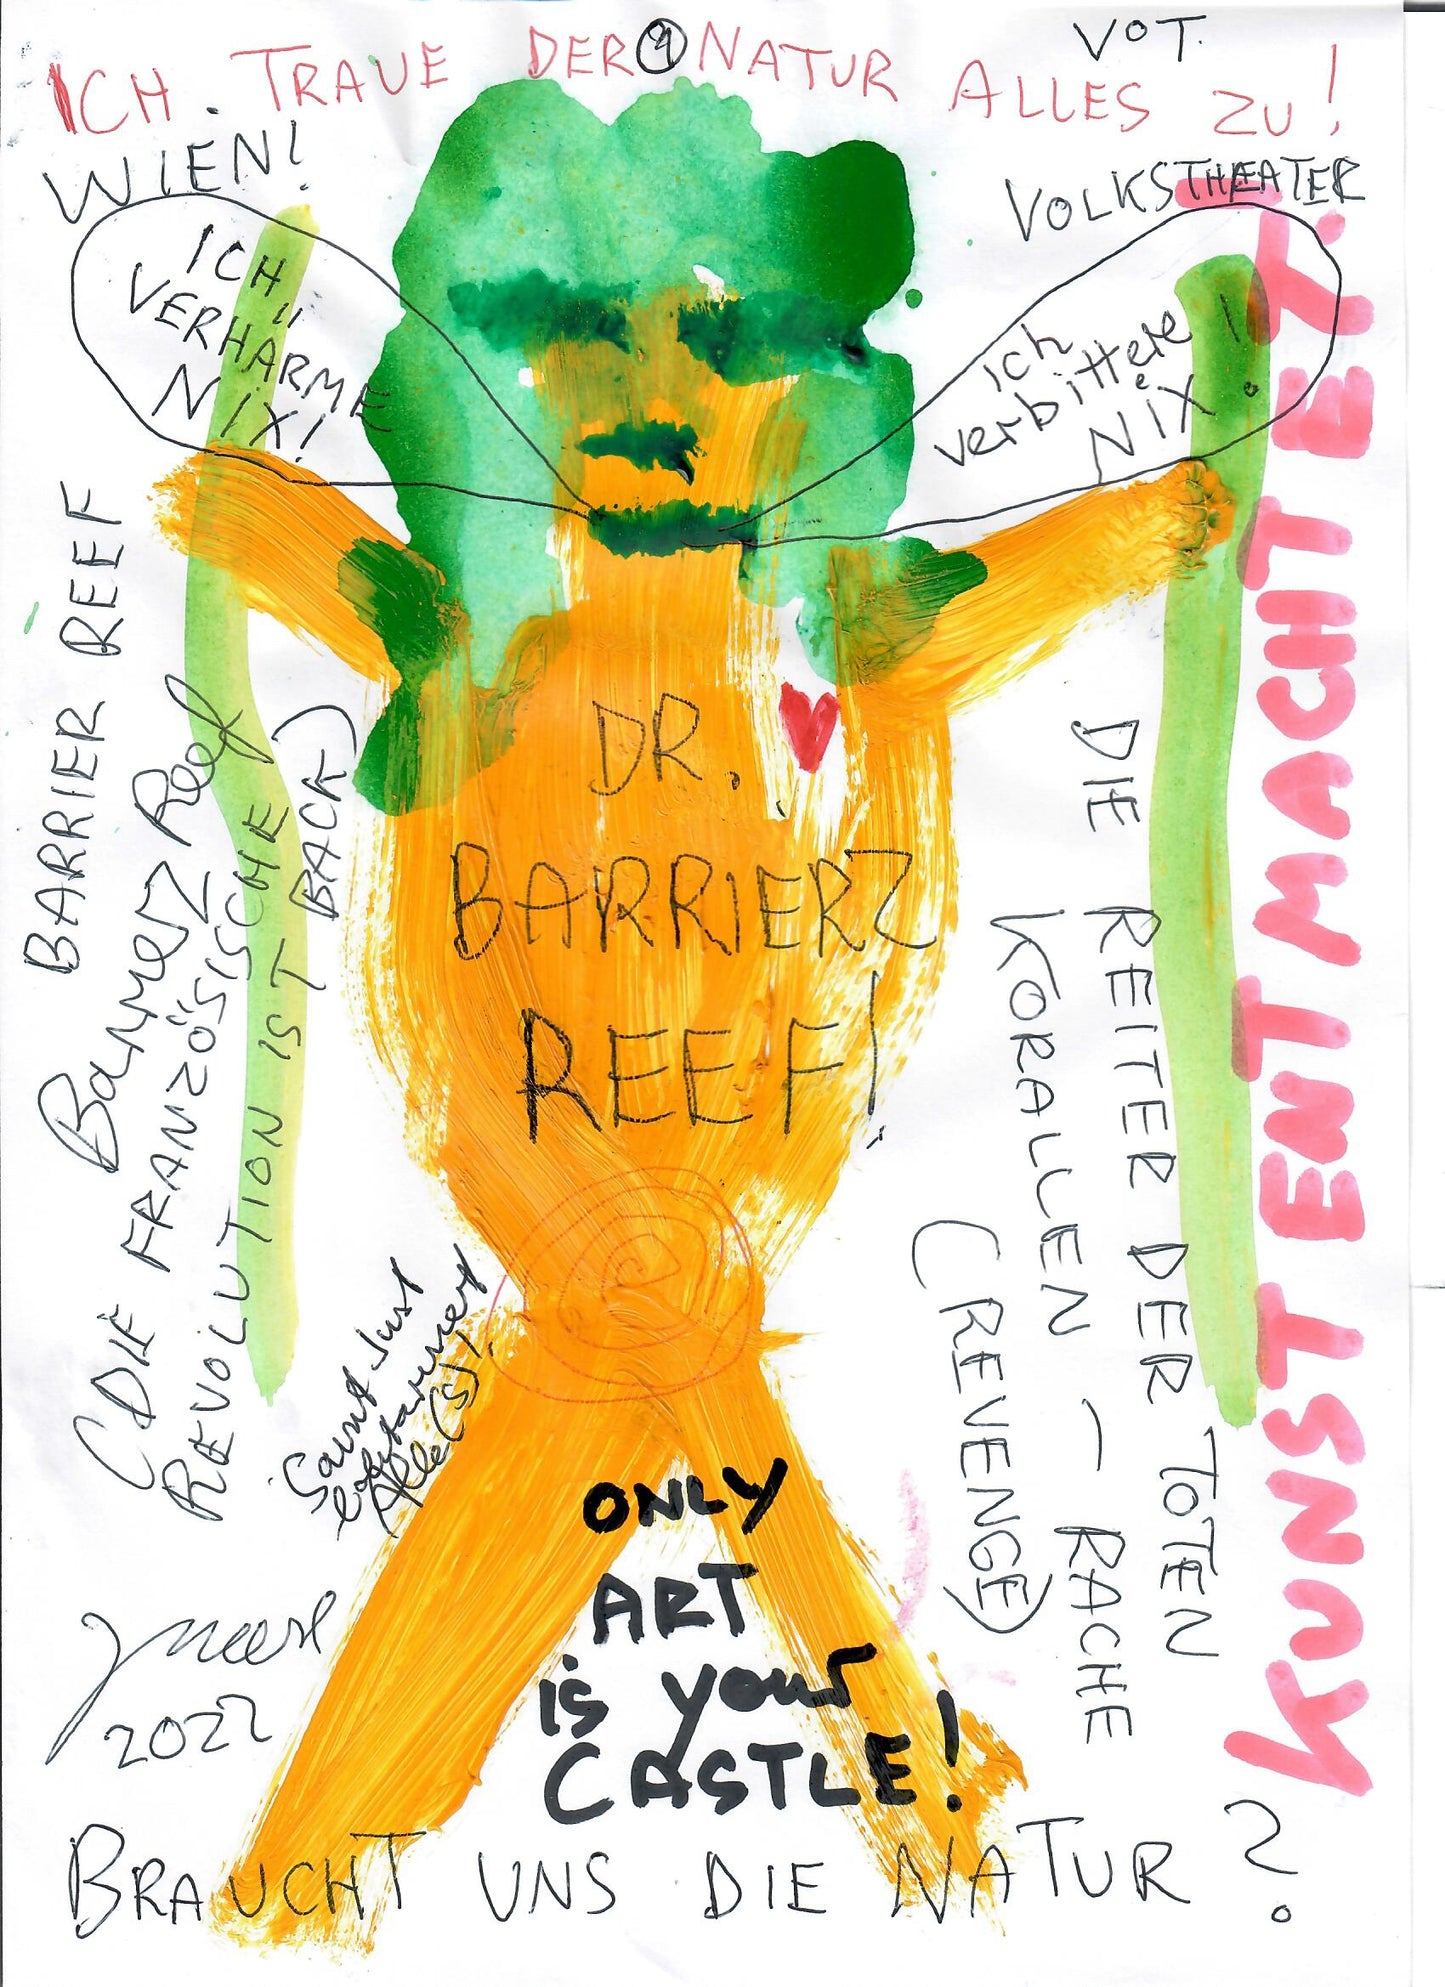 VOT.
ICH TRAUE DER NATUR ALLES ZU!
WIEN!
VOLKSTHEATER
ICH
VERHÄRME
NIX!
ich
verbittere
NiX!
KUNST ENTMACHTET.
BARRIER REEF
BarrierZ Reef
(DIE FRANZÖSISCHE
REVOLUTION IST
BACK)
DR.
BARRIERZ
REEF!
DIE REITER DER TOTEN
KORALLEN – RACHE
(REVENGE)
Saint Just
Alle(s)!
ONLY
ART
is your
CASTLE!
2022
BRAUCHT UNS DIE NATUR?